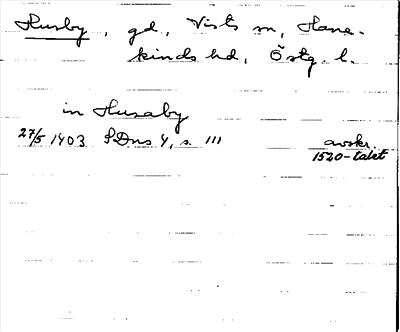 Husby, gd, Vists sn, Hane-
kinds hd, Östg. l.
in Husaby
27/5 1403 SDns 4, s. 111 avskr.
1520-talet